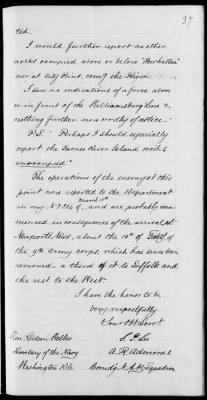 37
ted.
I would further report no other
works occupied above or below "Berkeley"
nor at City Point, comd'g the River.
I saw no indications of a force above
or in front of the Williamsburg Line &
nothing further now worthy of notice.
P.S. Perhaps I should especially
report the James River Island works
unoccupied"
The operations of the enemy at this
point were reported to the Department
in my No 226 of March 14th, and are probably com-
menced in consequence of the arrival, at
Newport's News, about the 10th of Feby, of
the 9th army corps, which has since been
removed a third of it to Suffolk and
the rest to the West.
I have the honor to be
Very respectfully
Your Obt. Servt.
S. P. Lee
A. R. Admiral
Comdg. N. A. B. Squadron
Hon. Gideon Welles
Secretary of the Navy
Washington D.C.